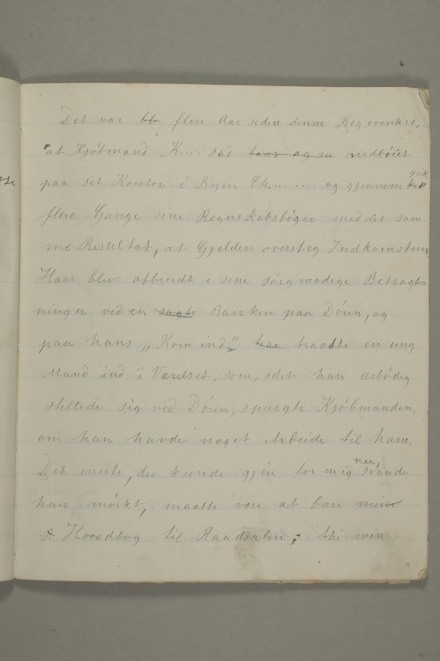 Det var flere Aar siden denne Begivenhed,
at Kjöbmand K.... sad taus og nedböiet
paa sit Kontor i Byen Th...... og gjennemgik
flere Gange sine Regnskabsböger med det sam-
me Resultat, at Gjelden oversteg Indkomsten
Han blev afbrudt i sine sörgmodige Betragt-
ninger ved en sagte Banken paa Dören, og
paa hans „Kom ind" traadte en ung
Mand ind i Værelset, som, idet han ærbödig
stillede sig ved Dören, spurgte Kjöbmanden,
om han havde noget Arbeide til ham.
Det eneste, du kunde gjöre for mig var, svarede
han mörkt, maatte være at bære mine
Hovedbog til Raadsalen; thi min